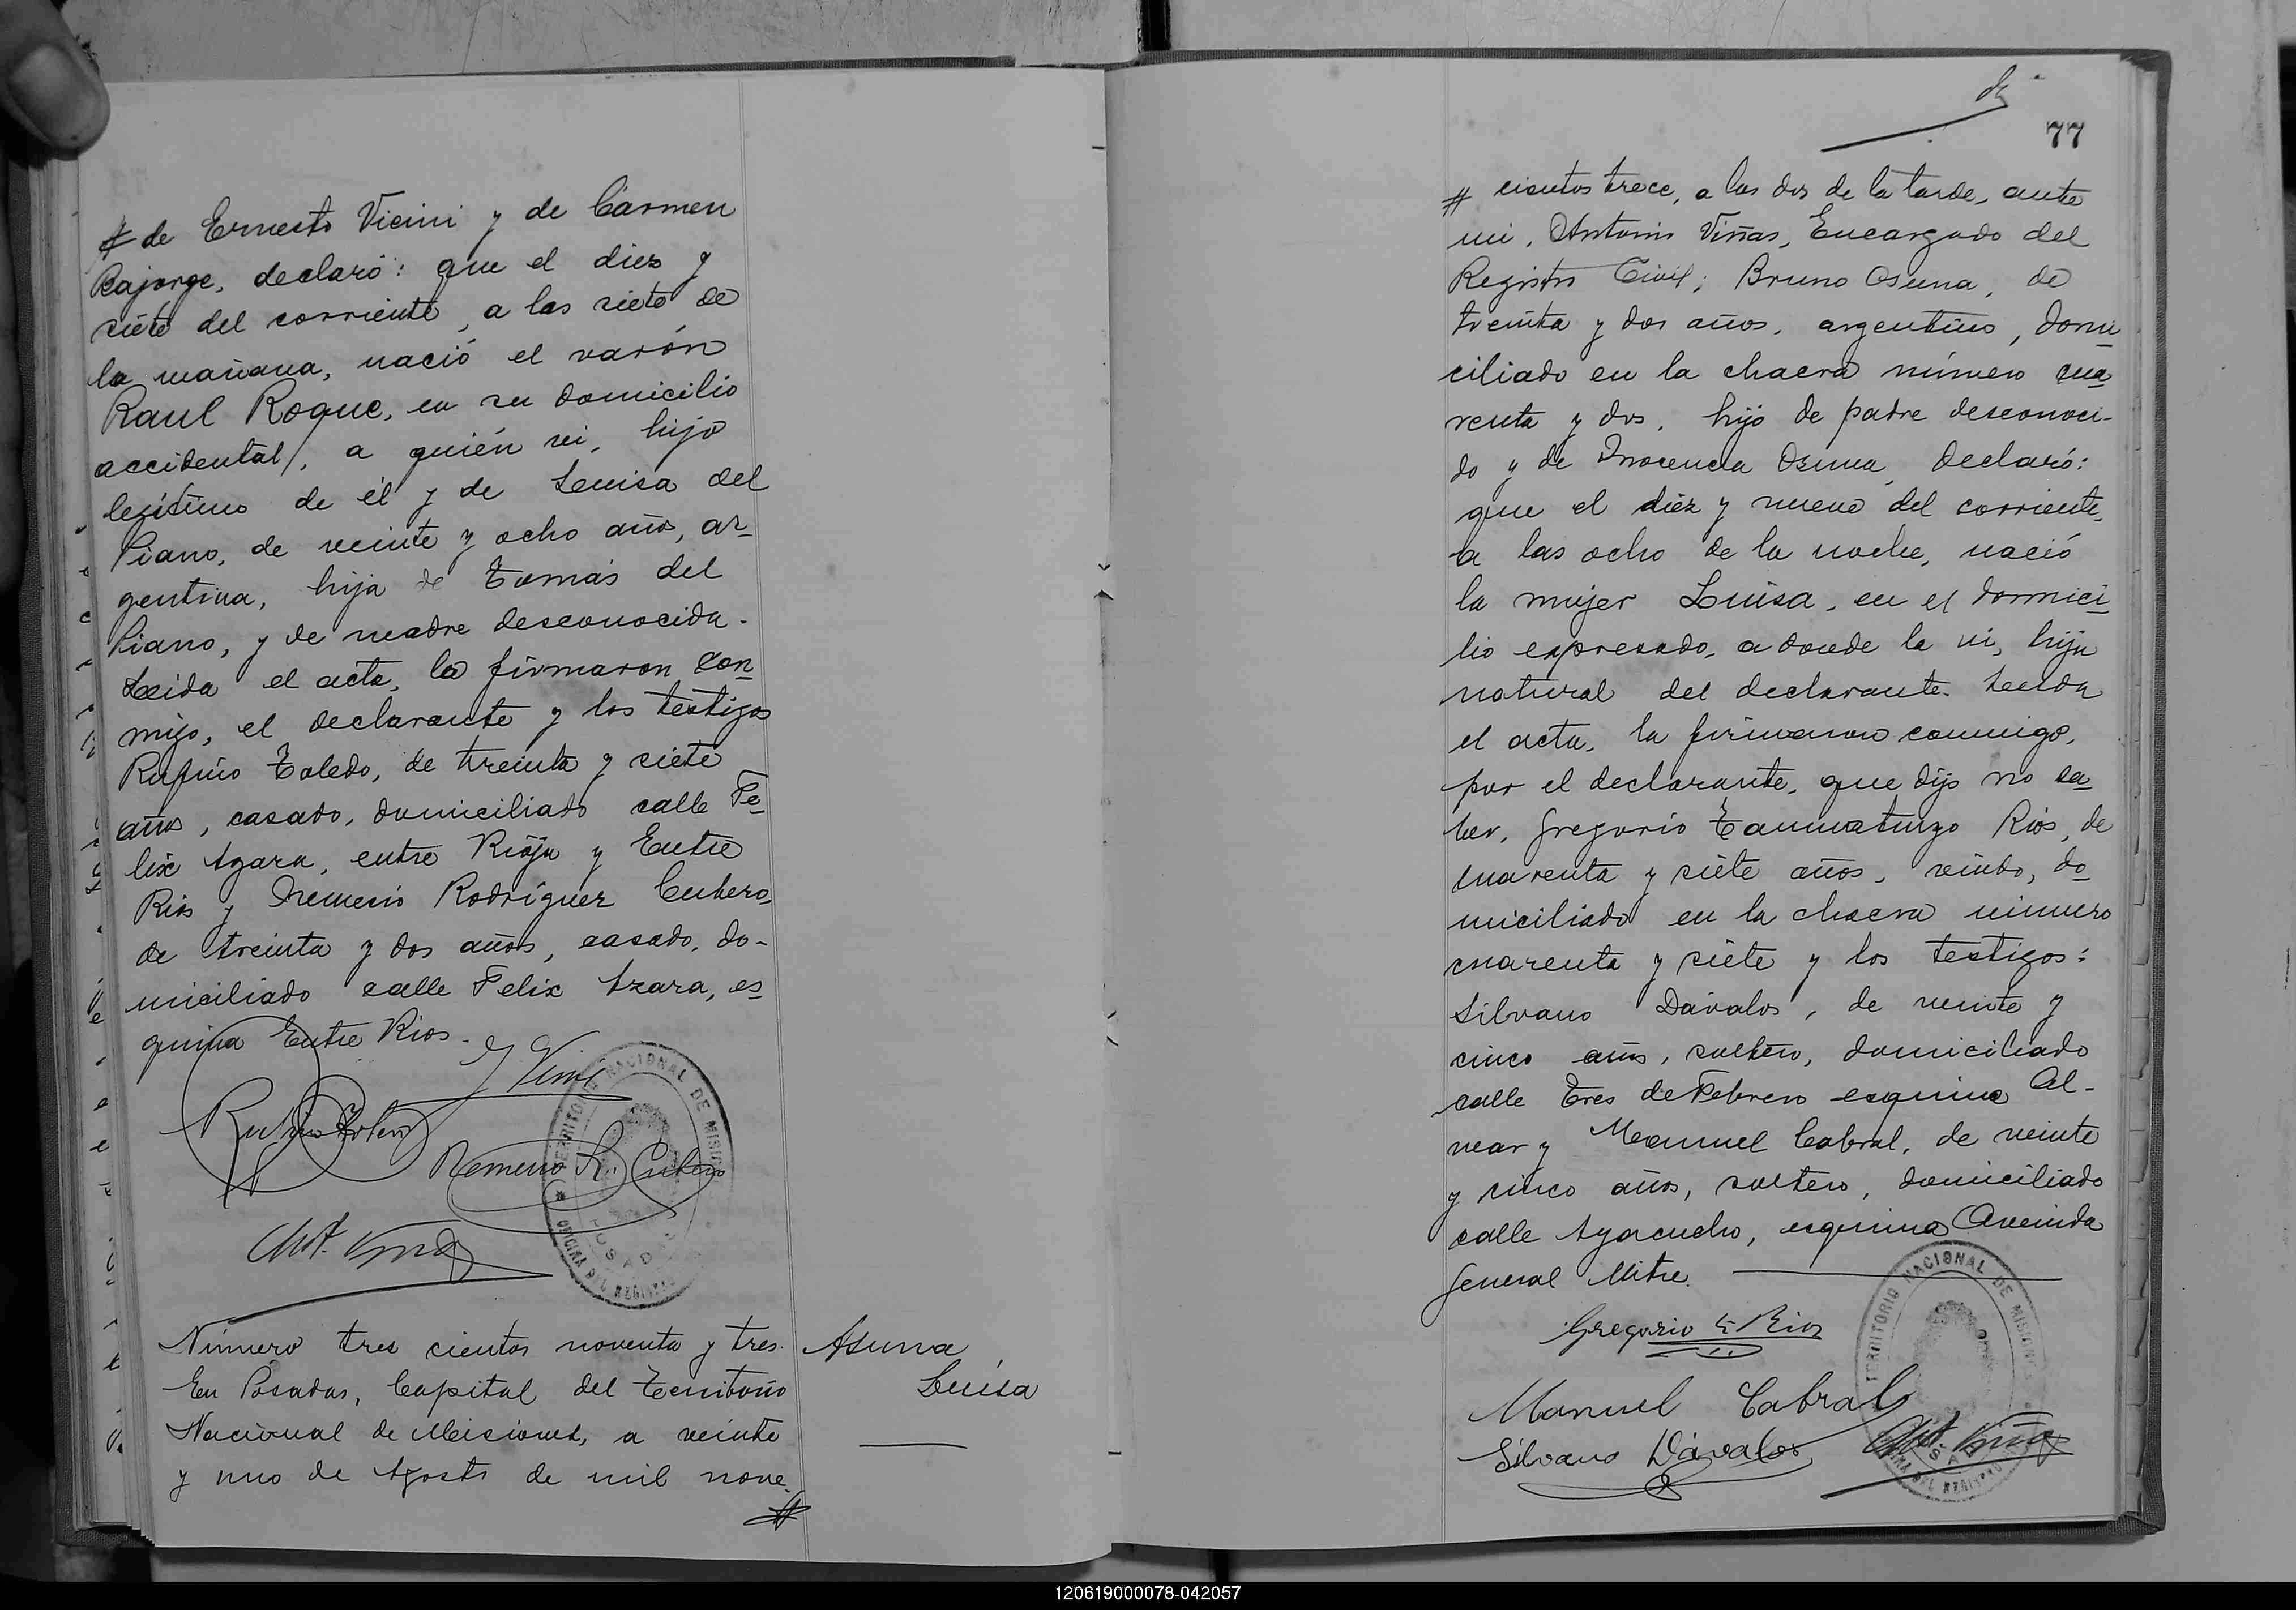 # de Ernesto Vicini y de Cármen
Rajorge, declaró: que el diez y
siete del corriente, a las siete de
la mañana, nació el varón
Raul Roque, en su domicilio
accidental, a quién vi, hijo
legítimo de él y de Luisa del
Piano, de veinte y ocho años, ar-
gentina, hija de Tomás del
Piano, y de madre desconocida.
Leida el acta, la firmaron con
migo, el declarante y los testigos
Rufino Toledo, de treinta y siete
años, casado, domiciliado calle Fe
lix Azara, entre Rioja y Entre
Rios y Nemesio Rodríguez Cubero,
de treinta y dos años, casado, do-
miciliado calle Felix Azara, es
quina Entre Rios.
TERRITORIO NACIONAL DE MISIONES
OFICINA DEL REGISTRO
POSADAS
Nemesio R. Cubero
Ant. Viñas
Número tres cientos noventa y tres.
En Posadas, Capital del Territorio
Nacional de Misiones, a veinte
y uno de Agosto de mil nove
#
Asuna
Luisa
77
# cientos trece, a las dos de la tarde, ante
mi, Antonio Viñas, Encargado del
Registro Civil; Bruno Osuna, de
treinta y dos años, argentino, domi
ciliado en la chacra número cua
renta y dos, hijo de padre desconoci-
do y de Inocencia Osuna, declaró:
que el diez y nueve del corriente,
a las ocho de la noche, nació
la mujer Luisa, en el domici
lio expresado, a donde la vi, hija
natural del declarante. Leida
el acta, la firmaron conmigo,
por el declarante, que dijo no sa
ber, Gregorio Taumaturgo Rios, de
cuarenta y siete años, viudo, do
miciliado en la chacra número
cuarenta y siete y los testigos:
Silvano Dávalos, de veinte y
cinco años, soltero, domiciliado
calle Tres de Febrero esquina Al-
vear y Manuel Cabral, de veinte
y cinco años, soltero, domiciliado
calle Ayacucho, esquina Avenida
General Mitre.
Gregorio T. Rios
Manuel Cabral
Silvano Dávalos
Ant. Viñas
TERRITORIO NACIONAL DE MISIONES
120619000078-042057